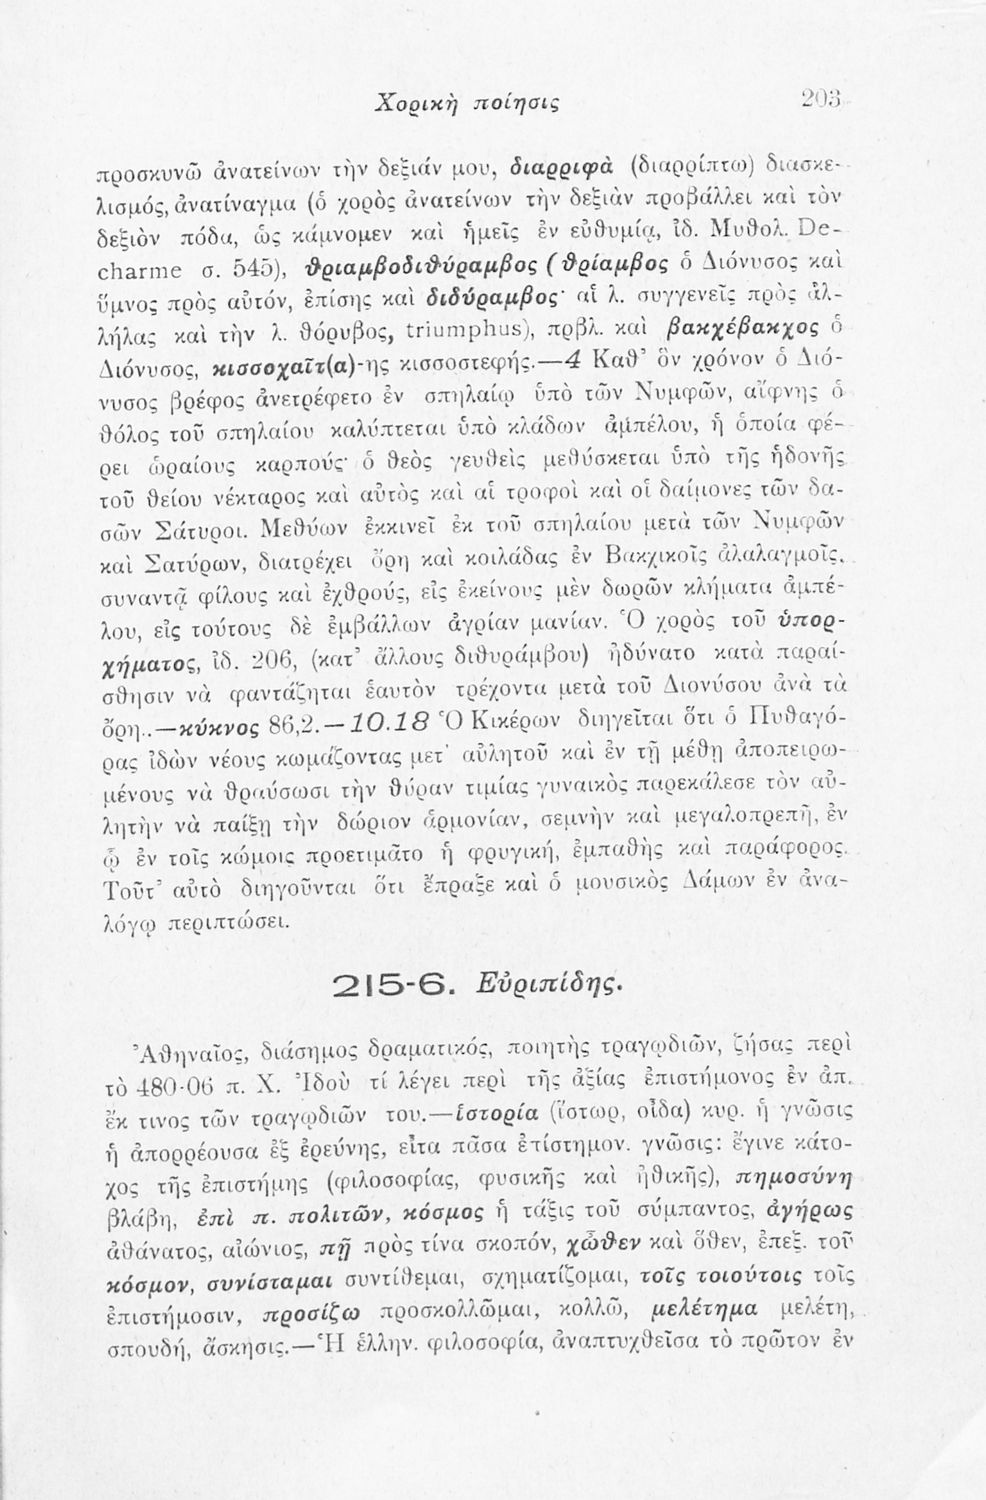 Χορικὴ ποίησις 203
προσκυνῶ ἀνατείνων τὴν δεξιάν μου, διαρριφὰ (διαρρίπτω) διασκε-
λισμός, ἀνατίναγμα (ὁ χορὸς ἀνατείνων τὴν δεξιὰν προβάλλει καὶ τὸν
δεξιὸν πόδα, ὡς κάμνομεν καὶ ἡμεῖς ἐν εὐθυμίᾳ, ἰδ. Μυθολ. De-
charme σ. 545), θριαμβοδιθύραμβος (θρίαμβος ὁ Διόνυσος καὶ
ὕμνος πρὸς αὐτόν, ἐπίσης καὶ διδύραμβος· αἱ λ. συγγενεῖς πρὸς ἀλ-
λήλας καὶ τὴν λ. θόρυβος, triumphus), πρβλ. καὶ βακχέβακχος ὁ
Διόνυσος, κισσοχαῖτ(α)-ης κισσοστεφής.—4 Καθ᾽ ὃν χρόνον ὁ Διό-
νυσος βρέφος ἀνετρέφετο ἐν σπηλαίῳ ὑπὸ τῶν Νυμφῶν, αἴφνης ὁ
θόλος τοῦ σπηλαίου καλύπτεται ὑπὸ κλάδων ἀμπέλου, ἡ ὁποία φέ-
ρει ὡραίους καρπούς· ὁ θεὸς γευθεὶς μεθύσκεται ὑπὸ τῆς ἡδονῆς
τοῦ θείου νέκταρος καὶ αὐτὸς καὶ αἱ τροφοὶ καὶ οἱ δαίμονες τῶν δα-
σῶν Σάτυροι. Μεθύων ἐκκινεῖ ἐκ τοῦ σπηλαίου μετὰ τῶν Νυμφῶν
καὶ Σατύρων, διατρέχει ὄρη καὶ κοιλάδας ἐν Βακχικοῖς ἀλαλαγμοῖς,
συναντᾷ φίλους καὶ ἐχθρούς, εἰς ἐκείνους μὲν δωρῶν κλήματα ἀμπέ-
λου, εἰς τούτους δὲ ἐμβάλλων ἀγρίαν μανίαν. Ὁ χορὸς τοῦ ὑπορ-
χήματος, ἰδ. 206, (κατ᾽ ἄλλους διθυράμβου) ἠδύνατο κατὰ παραί-
σθησιν νὰ φαντάζηται ἑαυτὸν τρέχοντα μετὰ τοῦ Διονύσου ἀνὰ τὰ
ὄρη..—κύκνος 86,2.—10.18 Ὁ Κικέρων διηγεῖται ὅτι ὁ Πυθαγό-
ρας ἰδὼν νέους κωμάζοντας μετ᾽ αὐλητοῦ καὶ ἐν τῇ μέθῃ ἀποπειρω-
μένους νὰ θραύσωσι τὴν θύραν τιμίας γυναικὸς παρεκάλεσε τὸν αὐ-
λητὴν νὰ παίξῃ τὴν δώριον ἁρμονίαν, σεμνὴν καὶ μεγαλοπρεπῆ, ἐν
ᾧ ἐν τοῖς κώμοις προετιμᾶτο ἡ φρυγική, ἐμπαθὴς καὶ παράφορος.
Τοῦτ᾽ αὐτὸ διηγοῦνται ὅτι ἔπραξε καὶ ὁ μουσικὸς Δάμων ἐν ἀνα-
λόγῳ περιπτώσει.
215-6. Εὐριπίδης.
Ἀθηναῖος, διάσημος δραματικός, ποιητὴς τραγῳδιῶν, ζήσας περὶ
τὸ 480-06 π. Χ. Ἰδοὺ τί λέγει περὶ τῆς ἀξίας ἐπιστήμονος ἐν ἀπ.
ἔκ τινος τῶν τραγῳδιῶν του.—ἱστορία (ἵστωρ, οἶδα) κυρ. ἡ γνῶσις
ἡ ἀπορρέουσα ἐξ ἐρεύνης, εἶτα πᾶσα ἐπίστημον. γνῶσις: ἔγινε κάτο-
χος τῆς ἐπιστήμης (φιλοσοφίας, φυσικῆς καὶ ἠθικῆς), πημοσύνη
βλάβη, ἐπὶ π. πολιτῶν, κόσμος ἡ τάξις τοῦ σύμπαντος, ἀγήρως
ἀθάνατος, αἰώνιος, πῇ πρὸς τίνα σκοπόν, χὦθεν καὶ ὅθεν, ἐπεξ. τοῦ
κόσμον, συνίσταμαι συντίθεμαι, σχηματίζομαι, τοῖς τοιούτοις τοῖς
ἐπιστήμοσιν, προσίζω προσκολλῶμαι, κολλῶ, μελέτημα μελέτη,
σπουδή, ἄσκησις.—Ἡ ἑλλην. φιλοσοφία, ἀναπτυχθεῖσα τὸ πρῶτον ἐν